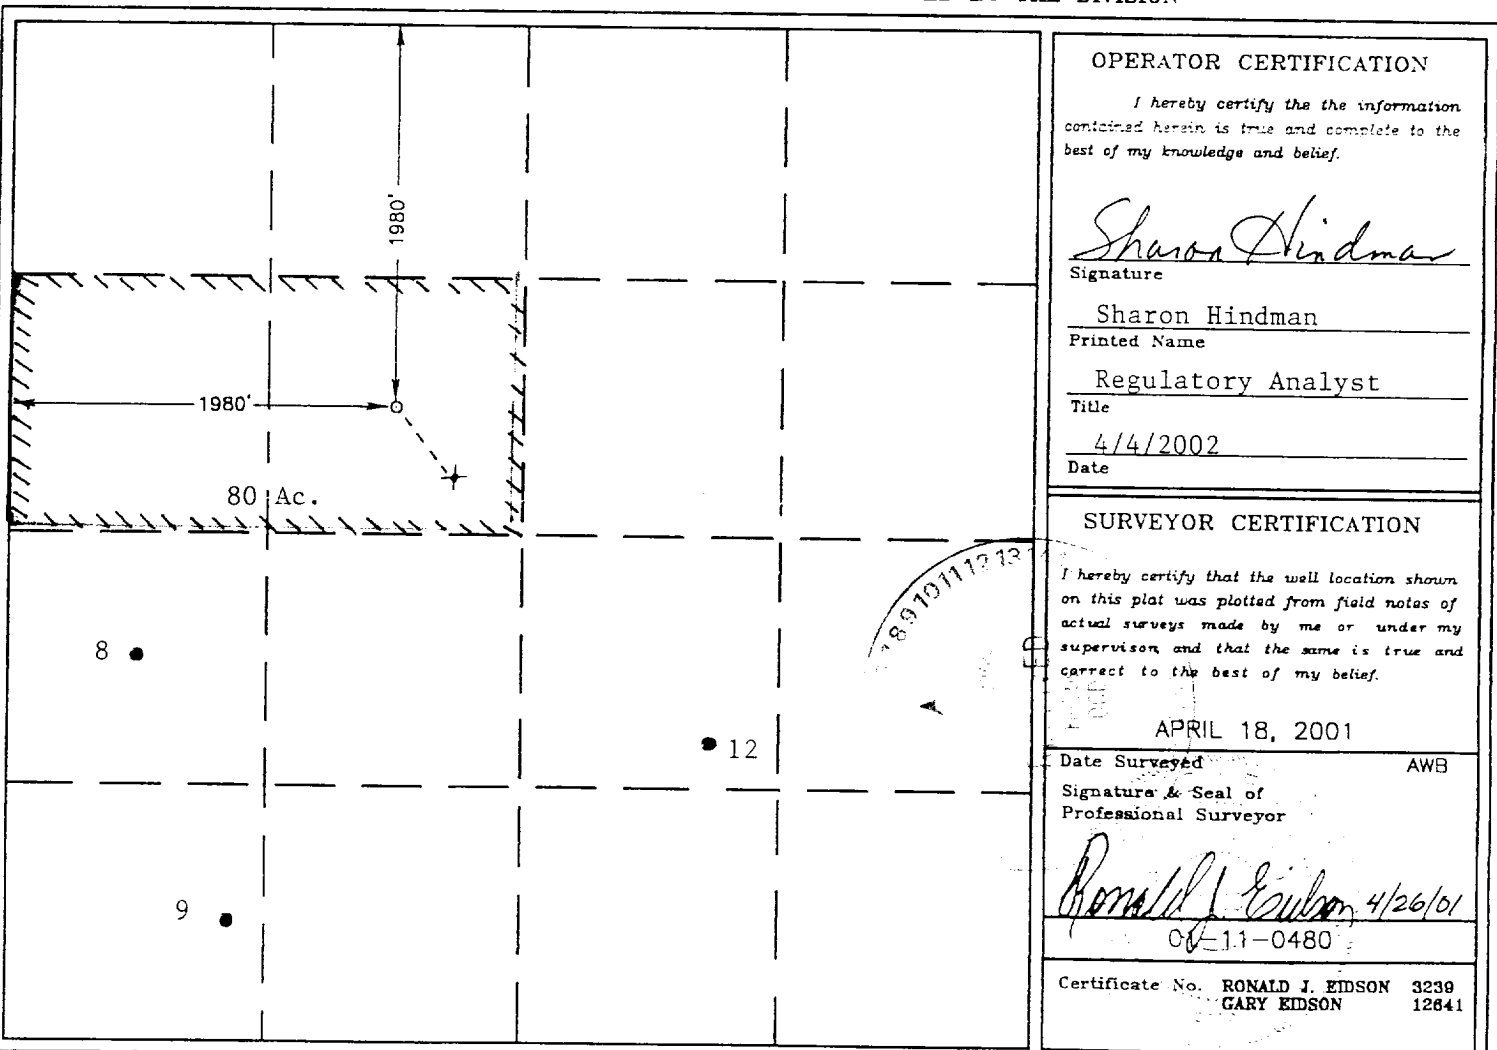 1980'
1980'
80 Ac.
8
12
9
8 9 10 11 12 13 14
OPERATOR CERTIFICATION
I hereby certify the the information
contained herein is true and complete to the
best of my knowledge and belief.
Sharon Hindman
Signature
Sharon Hindman
Printed Name
Regulatory Analyst
Title
4/4/2002
Date
SURVEYOR CERTIFICATION
I hereby certify that the well location shown
on this plat was plotted from field notes of
actual surveys made by me or under my
supervison, and that the same is true and
correct to the best of my belief.
APRIL 18, 2001
Date Surveyed AWB
Signature & Seal of
Professional Surveyor
Ronald J. Eidson 4/26/01
01-11-0480
Certificate No. RONALD J. EIDSON 3239
GARY EIDSON 12641